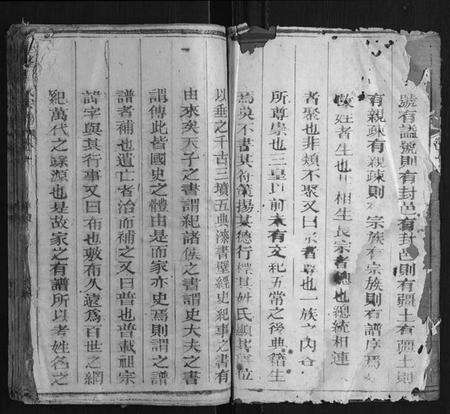 號有諡號則有封邑有封邑則有疆土有疆土則
有親疎有親疎則 宗族有宗族則有譜序焉
姓者生也 相生長宗者總也總統相連
者聚也非類不聚又曰宗者尊也一族之內合
所尊崇也三皇以前未有文紀五帝之後典籍生
焉莫不書其 揚其德行標其姓氏顯其 位
以垂之千古三墳五典漆書壁經史紀事之書有
由來矣天子之書謂紀諸侯之書謂史大夫之書
謂傳此皆國史之體由是而家亦史焉則謂之譜
譜者補也遺亡者治而補之又曰普也普載祖宗
諱字與其行事又曰布也敷布久遠為百世之綱
紀萬代之 源也是故家之有譜所以考姓名之